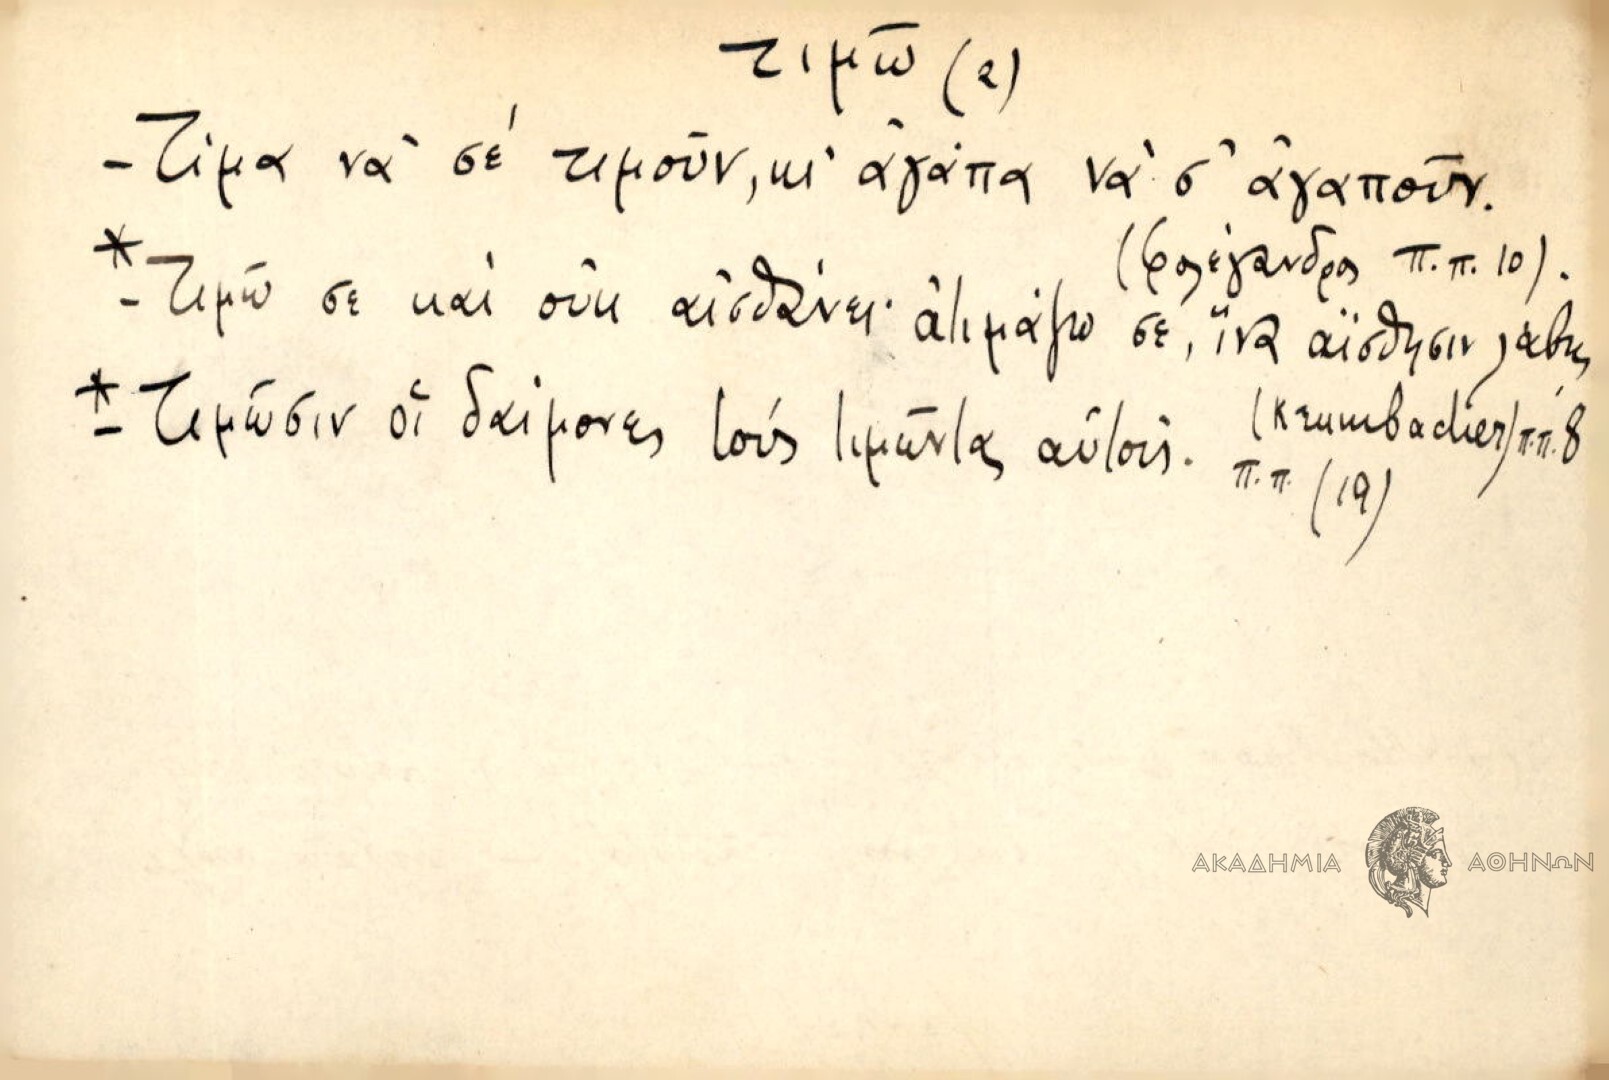 τιμῶ (2)
- Τίμα νὰ σέ τιμοῦν, κι' ἀγάπα νὰ σ' ἀγαποῦν.
(Φολέγανδρος π.π. 10).
* - Τιμῶ σε καὶ οὐκ αἰσθάνει· ἀτιμάζω σε, ἵνα αἴσθησιν λάβῃς
(Krumbacher) π.π. 8
* - Τιμῶσιν οἱ δαίμονες τούς τιμῶντας αὐτούς.
π.π. (19)
ΑΚΑΔΗΜΙΑ ΑΘΗΝΩΝ